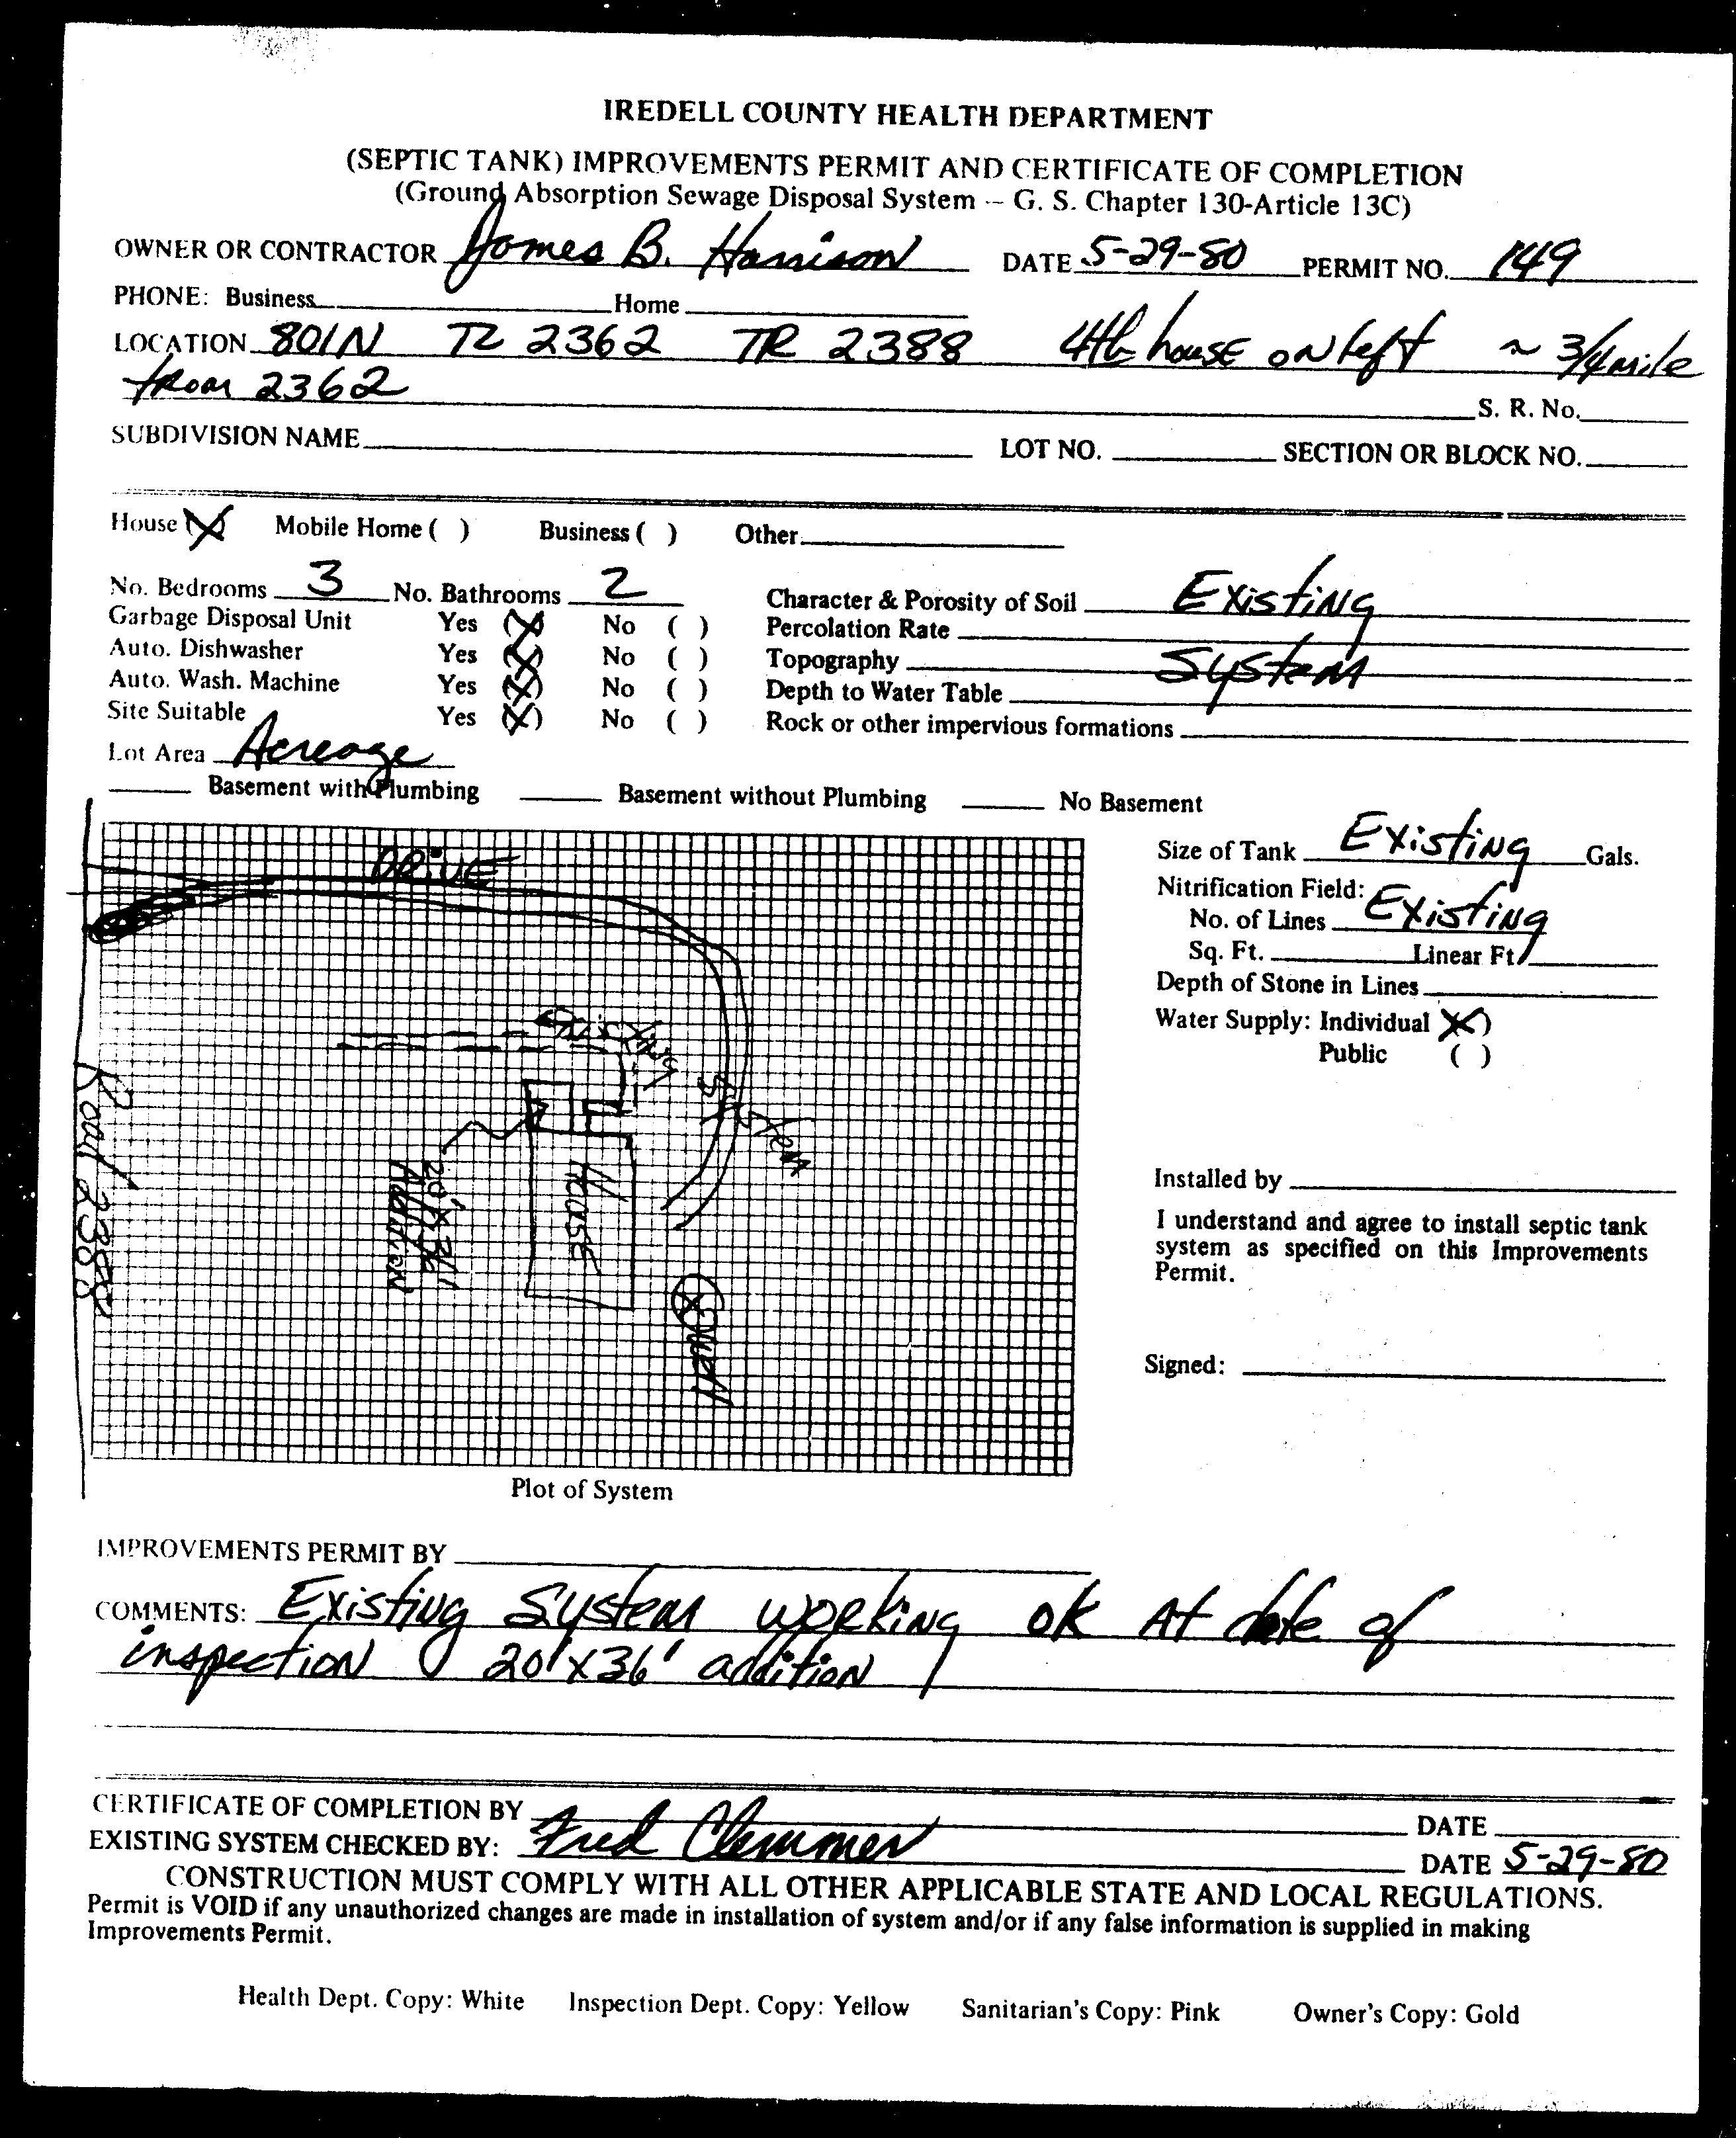 IREDELL COUNTY HEALTH DEPARTMENT
(SEPTIC TANK) IMPROVEMENTS PERMIT AND CERTIFICATE OF COMPLETION
(Ground Absorption Sewage Disposal System -- G. S. Chapter 130-Article 13C)
OWNER OR CONTRACTOR James B. Harrison DATE 5-29-80 PERMIT NO. 149
PHONE: Business Home
LOCATION 801N TL 2362 TR 2388 4th house on left ~ 3/4 mile
from 2362 S. R. No.
SUBDIVISION NAME LOT NO. SECTION OR BLOCK NO.
House (X) Mobile Home ( ) Business ( ) Other
No. Bedrooms 3 No. Bathrooms 2 Character & Porosity of Soil Existing
Garbage Disposal Unit Yes (X) No ( ) Percolation Rate
Auto. Dishwasher Yes (X) No ( ) Topography System
Auto. Wash. Machine Yes (X) No ( ) Depth to Water Table
Site Suitable Yes (X) No ( ) Rock or other impervious formations
Lot Area Acreage
Basement with Plumbing Basement without Plumbing No Basement
DRIVE
Existing System
20' x 36' Addition
House
Well
Road 2388
Size of Tank Existing Gals.
Nitrification Field:
No. of Lines Existing
Sq. Ft. Linear Ft.
Depth of Stone in Lines
Water Supply: Individual (X)
Public ( )
Installed by
I understand and agree to install septic tank
system as specified on this Improvements
Permit.
Signed:
Plot of System
IMPROVEMENTS PERMIT BY
COMMENTS: Existing System working ok At date of
inspection 20'x36' addition
CERTIFICATE OF COMPLETION BY DATE
EXISTING SYSTEM CHECKED BY: Fred Clemmer DATE 5-29-80
CONSTRUCTION MUST COMPLY WITH ALL OTHER APPLICABLE STATE AND LOCAL REGULATIONS.
Permit is VOID if any unauthorized changes are made in installation of system and/or if any false information is supplied in making
Improvements Permit.
Health Dept. Copy: White Inspection Dept. Copy: Yellow Sanitarian's Copy: Pink Owner's Copy: Gold